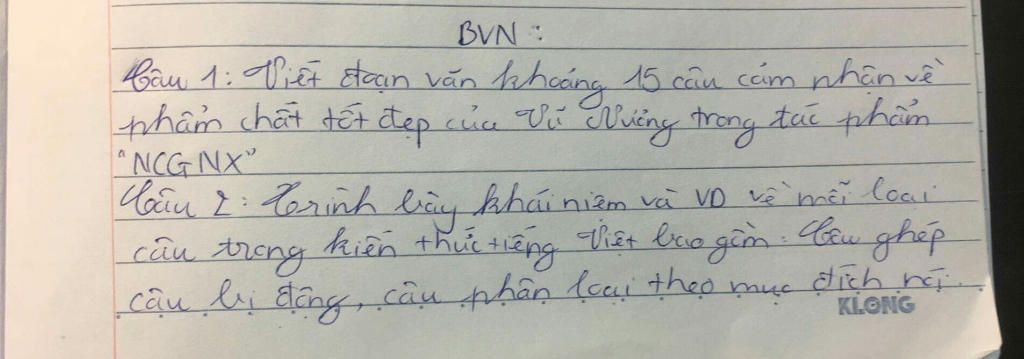 BVN :
Câu 1: Viết đoạn văn khoảng 15 câu cảm nhận về
phẩm chất tốt đẹp của Vũ Nương trong tác phẩm
"NCGNX"
Câu 2: Trình bày khái niệm và VD về mỗi loại
câu trong kiến thức tiếng Việt bao gồm: Câu ghép
câu bị động, câu phân loại theo mục đích nói.
KLONG